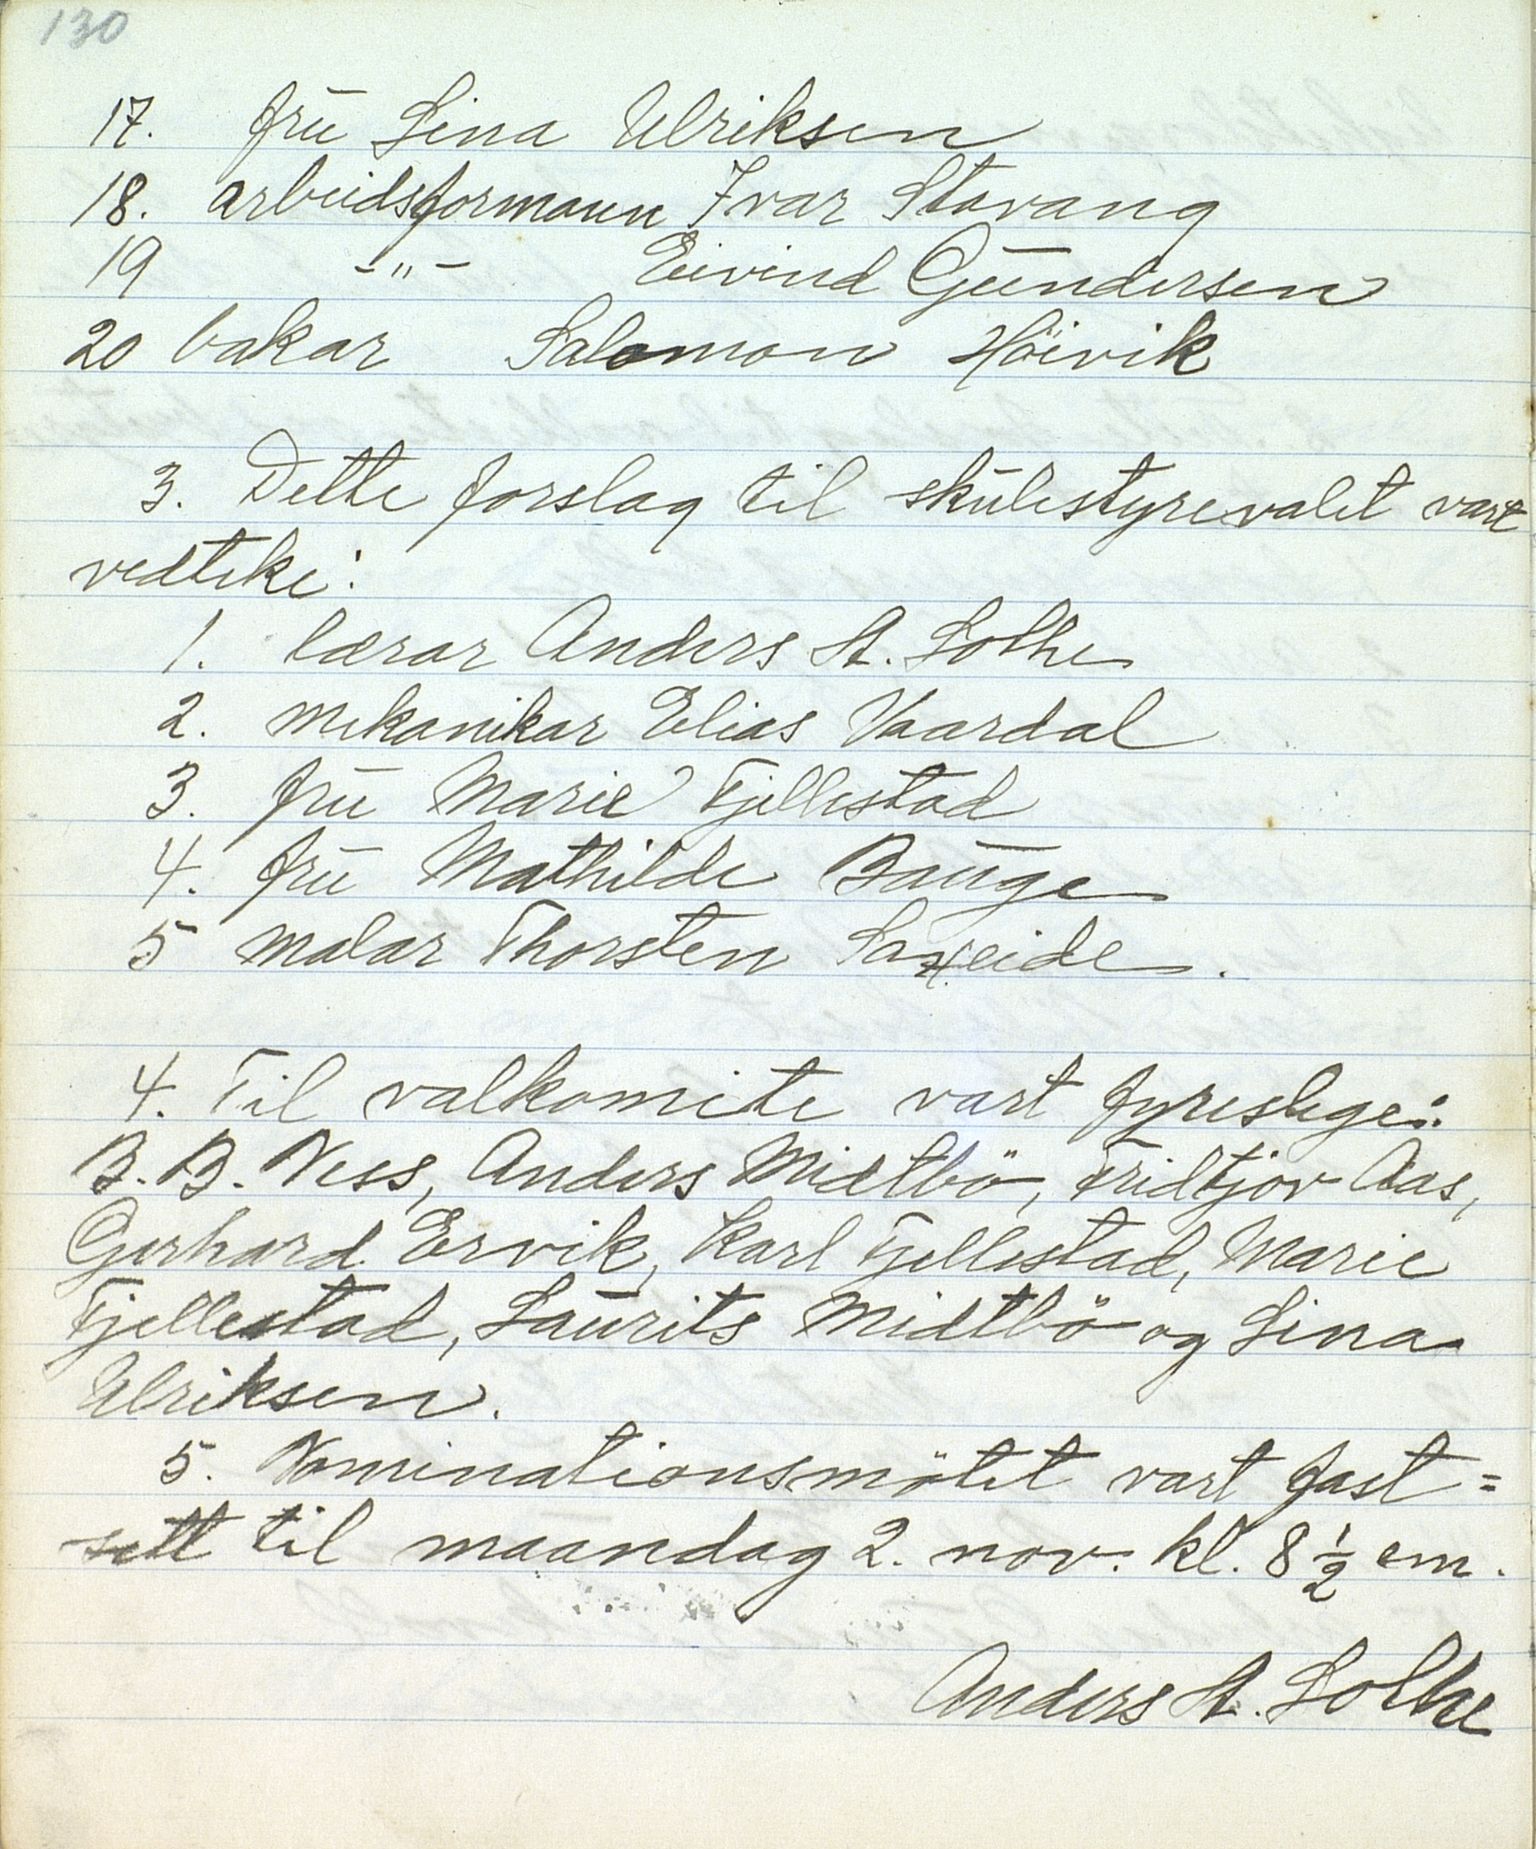 130
17. fru Lina Ulriksen
18. arbeidsformann Ivar Stavang
19 -"- Eivind Gundersen
20 bakar Salomon Höivik
3. Dette forslag til skulestyrevalet vart
vedteke:
1. lærar Anders A. Lothe
2. mekanikar Elias Vaardal
3. fru Marie Fjellestad
4. fru Mathilde Bauge
5 malar Thorsten Sax​eide.
4. Til valkomite vart fyreslege:
B. B. Ness, Anders Midtbö, Fridtjov Aas,
Gerhard Ervik, Karl Fjellestad, Marie
Fjellestad, Laurits Midtbö og Lina
Ulriksen.
5. Nominationsmötet vart fast=
sett til maandag 2. nov. kl. 8 ½ em.
Anders A. Lothe